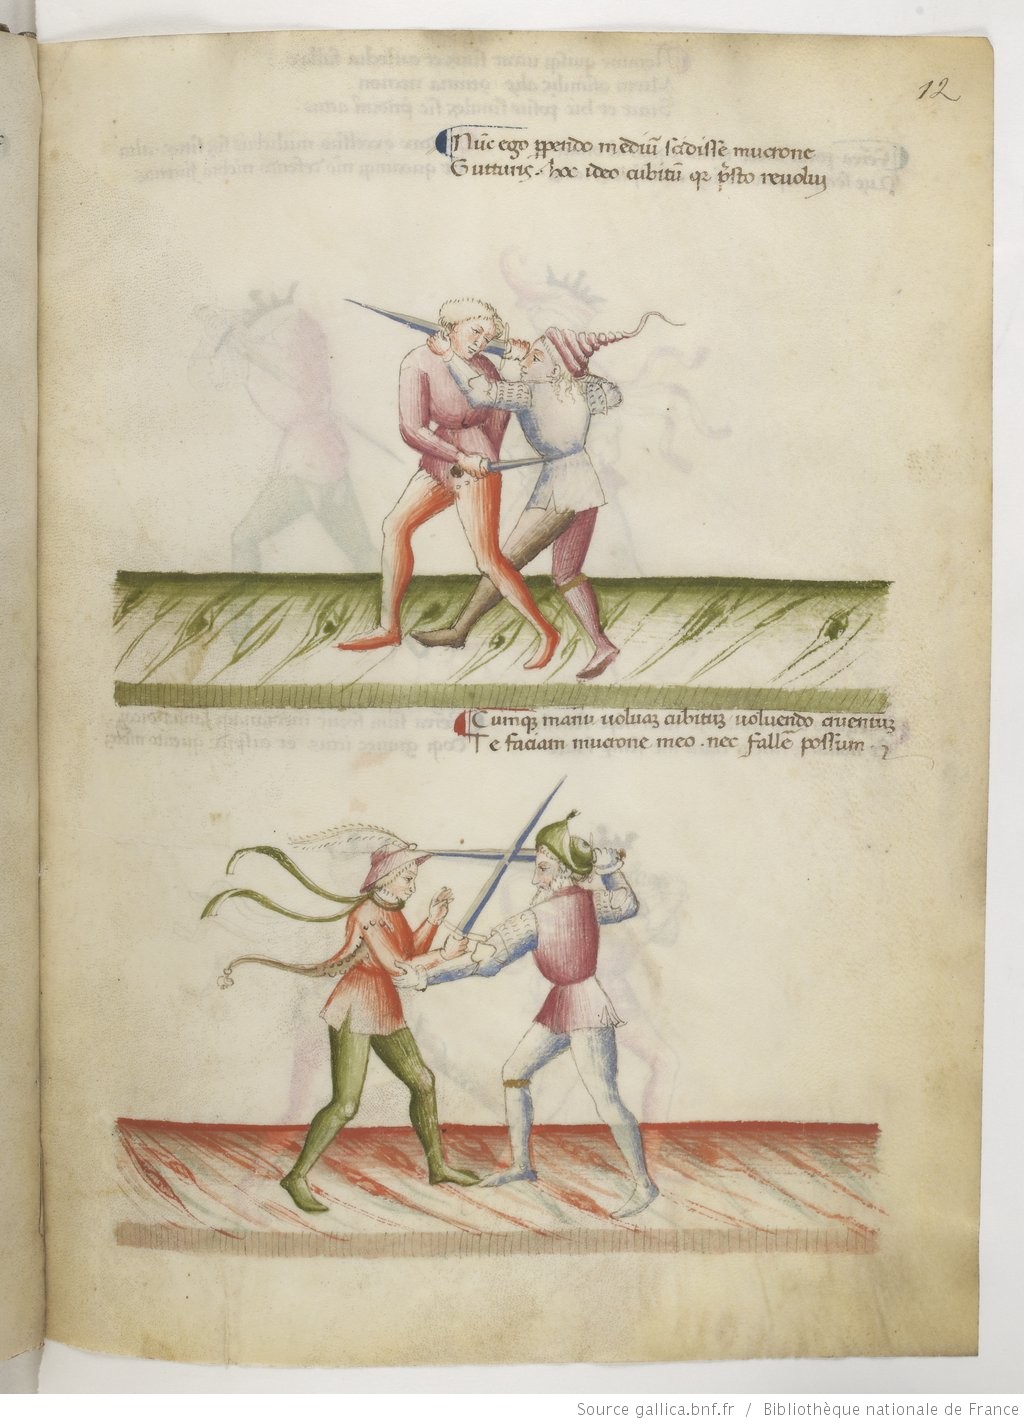 12
Nūc ego ꝓpendo mediū scidisse mucrone
Gutturis. hoc ideo cubitū qꝛ p̄sto reuolui
Cumqꝫ manu voluaꝫ cubituꝫ voluendo cruentuꝫ
Te faciam mucrone meo. nec fallē possum.
Source gallica.bnf.fr / Bibliothèque nationale de France